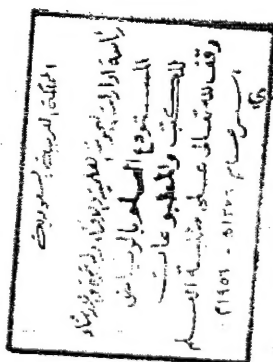 المملكة العربية السعودية
رئاسة إدارات البحوث العلمية والإفتاء والدعوة والإرشاد
المستودع السلم بالرياض
للكتب والمطبوعات
وقف لله تعالى على طلبة العلم